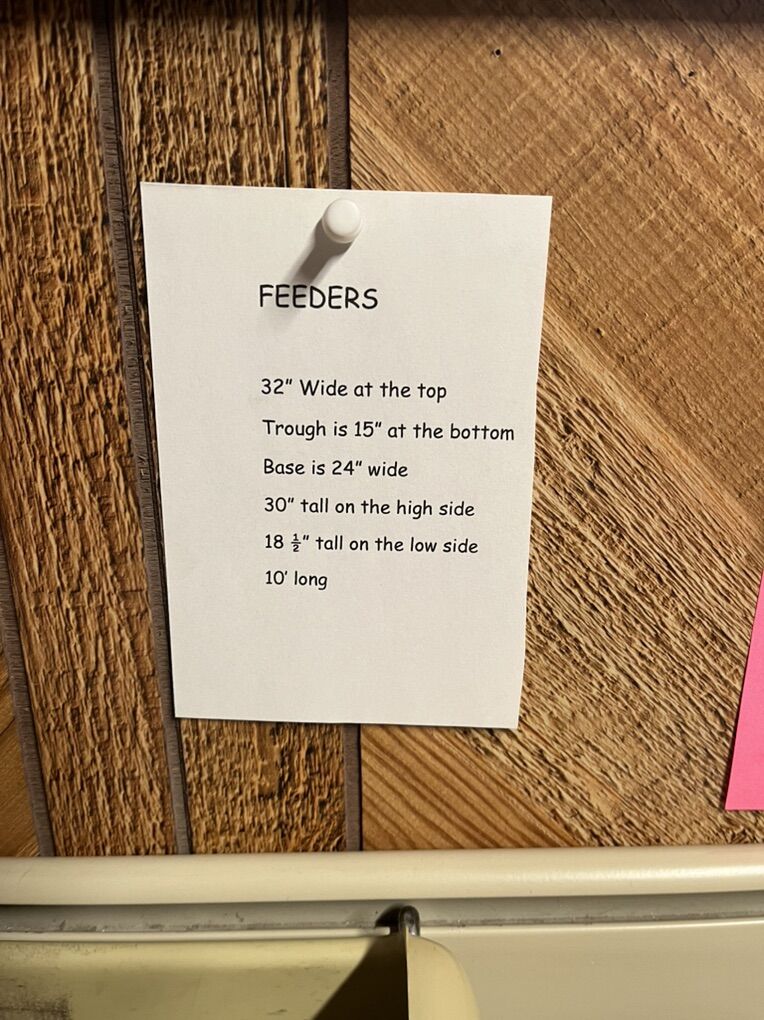 FEEDERS
32" Wide at the top
Trough is 15" at the bottom
Base is 24" wide
30" tall on the high side
18 ½" tall on the low side
10' long